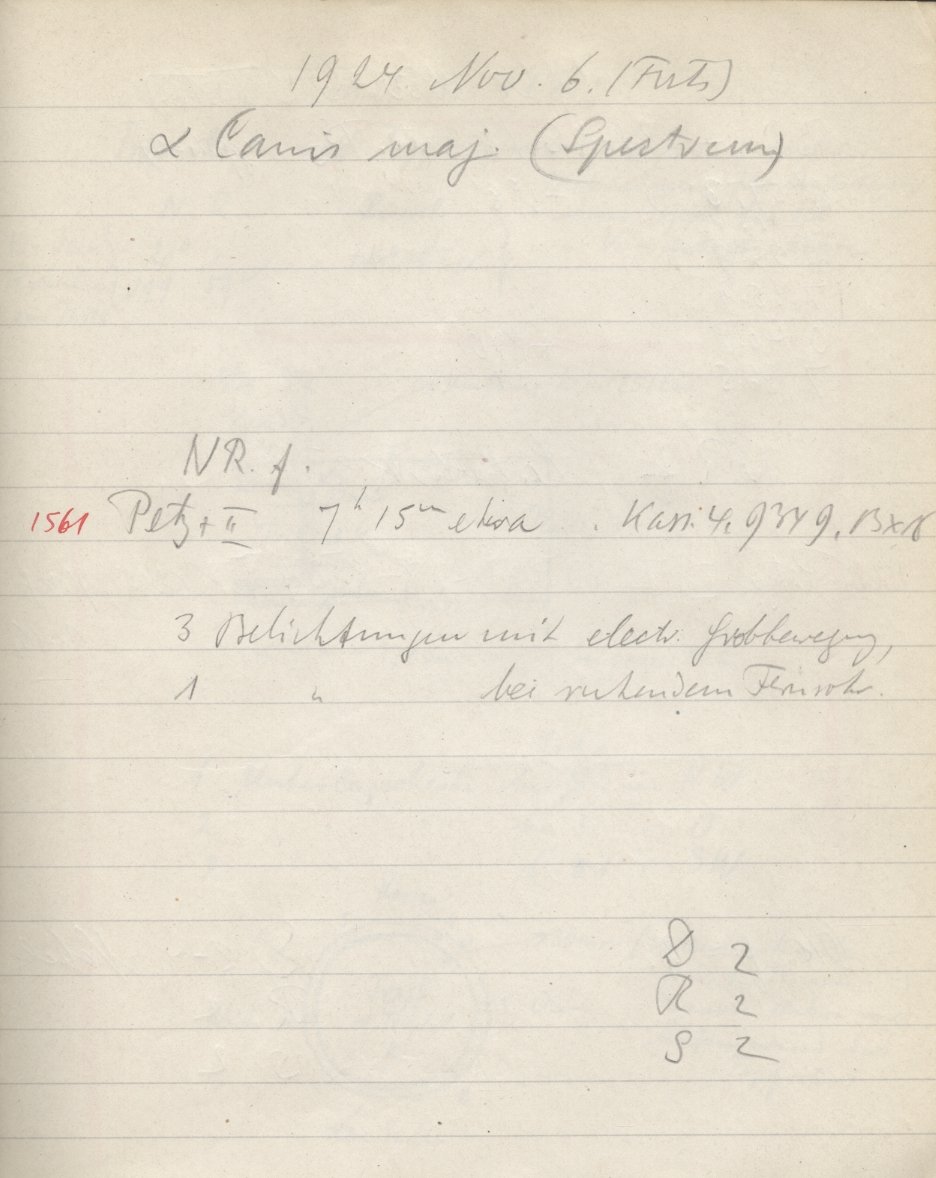 1924 Nov. 6. (Früh)
α Canis maj. (Spectrum)
NR. f.
1561 Petz + II 7h 15m etwa . Kass. 4. 9349. 13x18
3 Belichtungen mit electr. Grobbewegung,
1 " bei ruhendem Fernrohr.
D 2
R 2
S 2